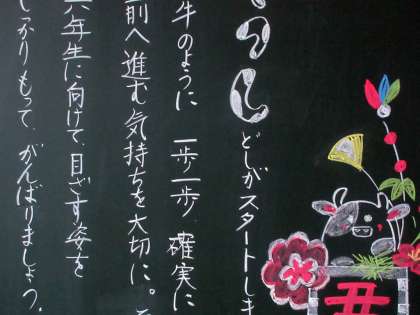 うしどしがスタートしま
牛のように 一歩一歩、確実に
前へ進む気持ちを大切に。
年生に向けて、目ざす姿を
しっかりもって、がんばりましょう。
丑